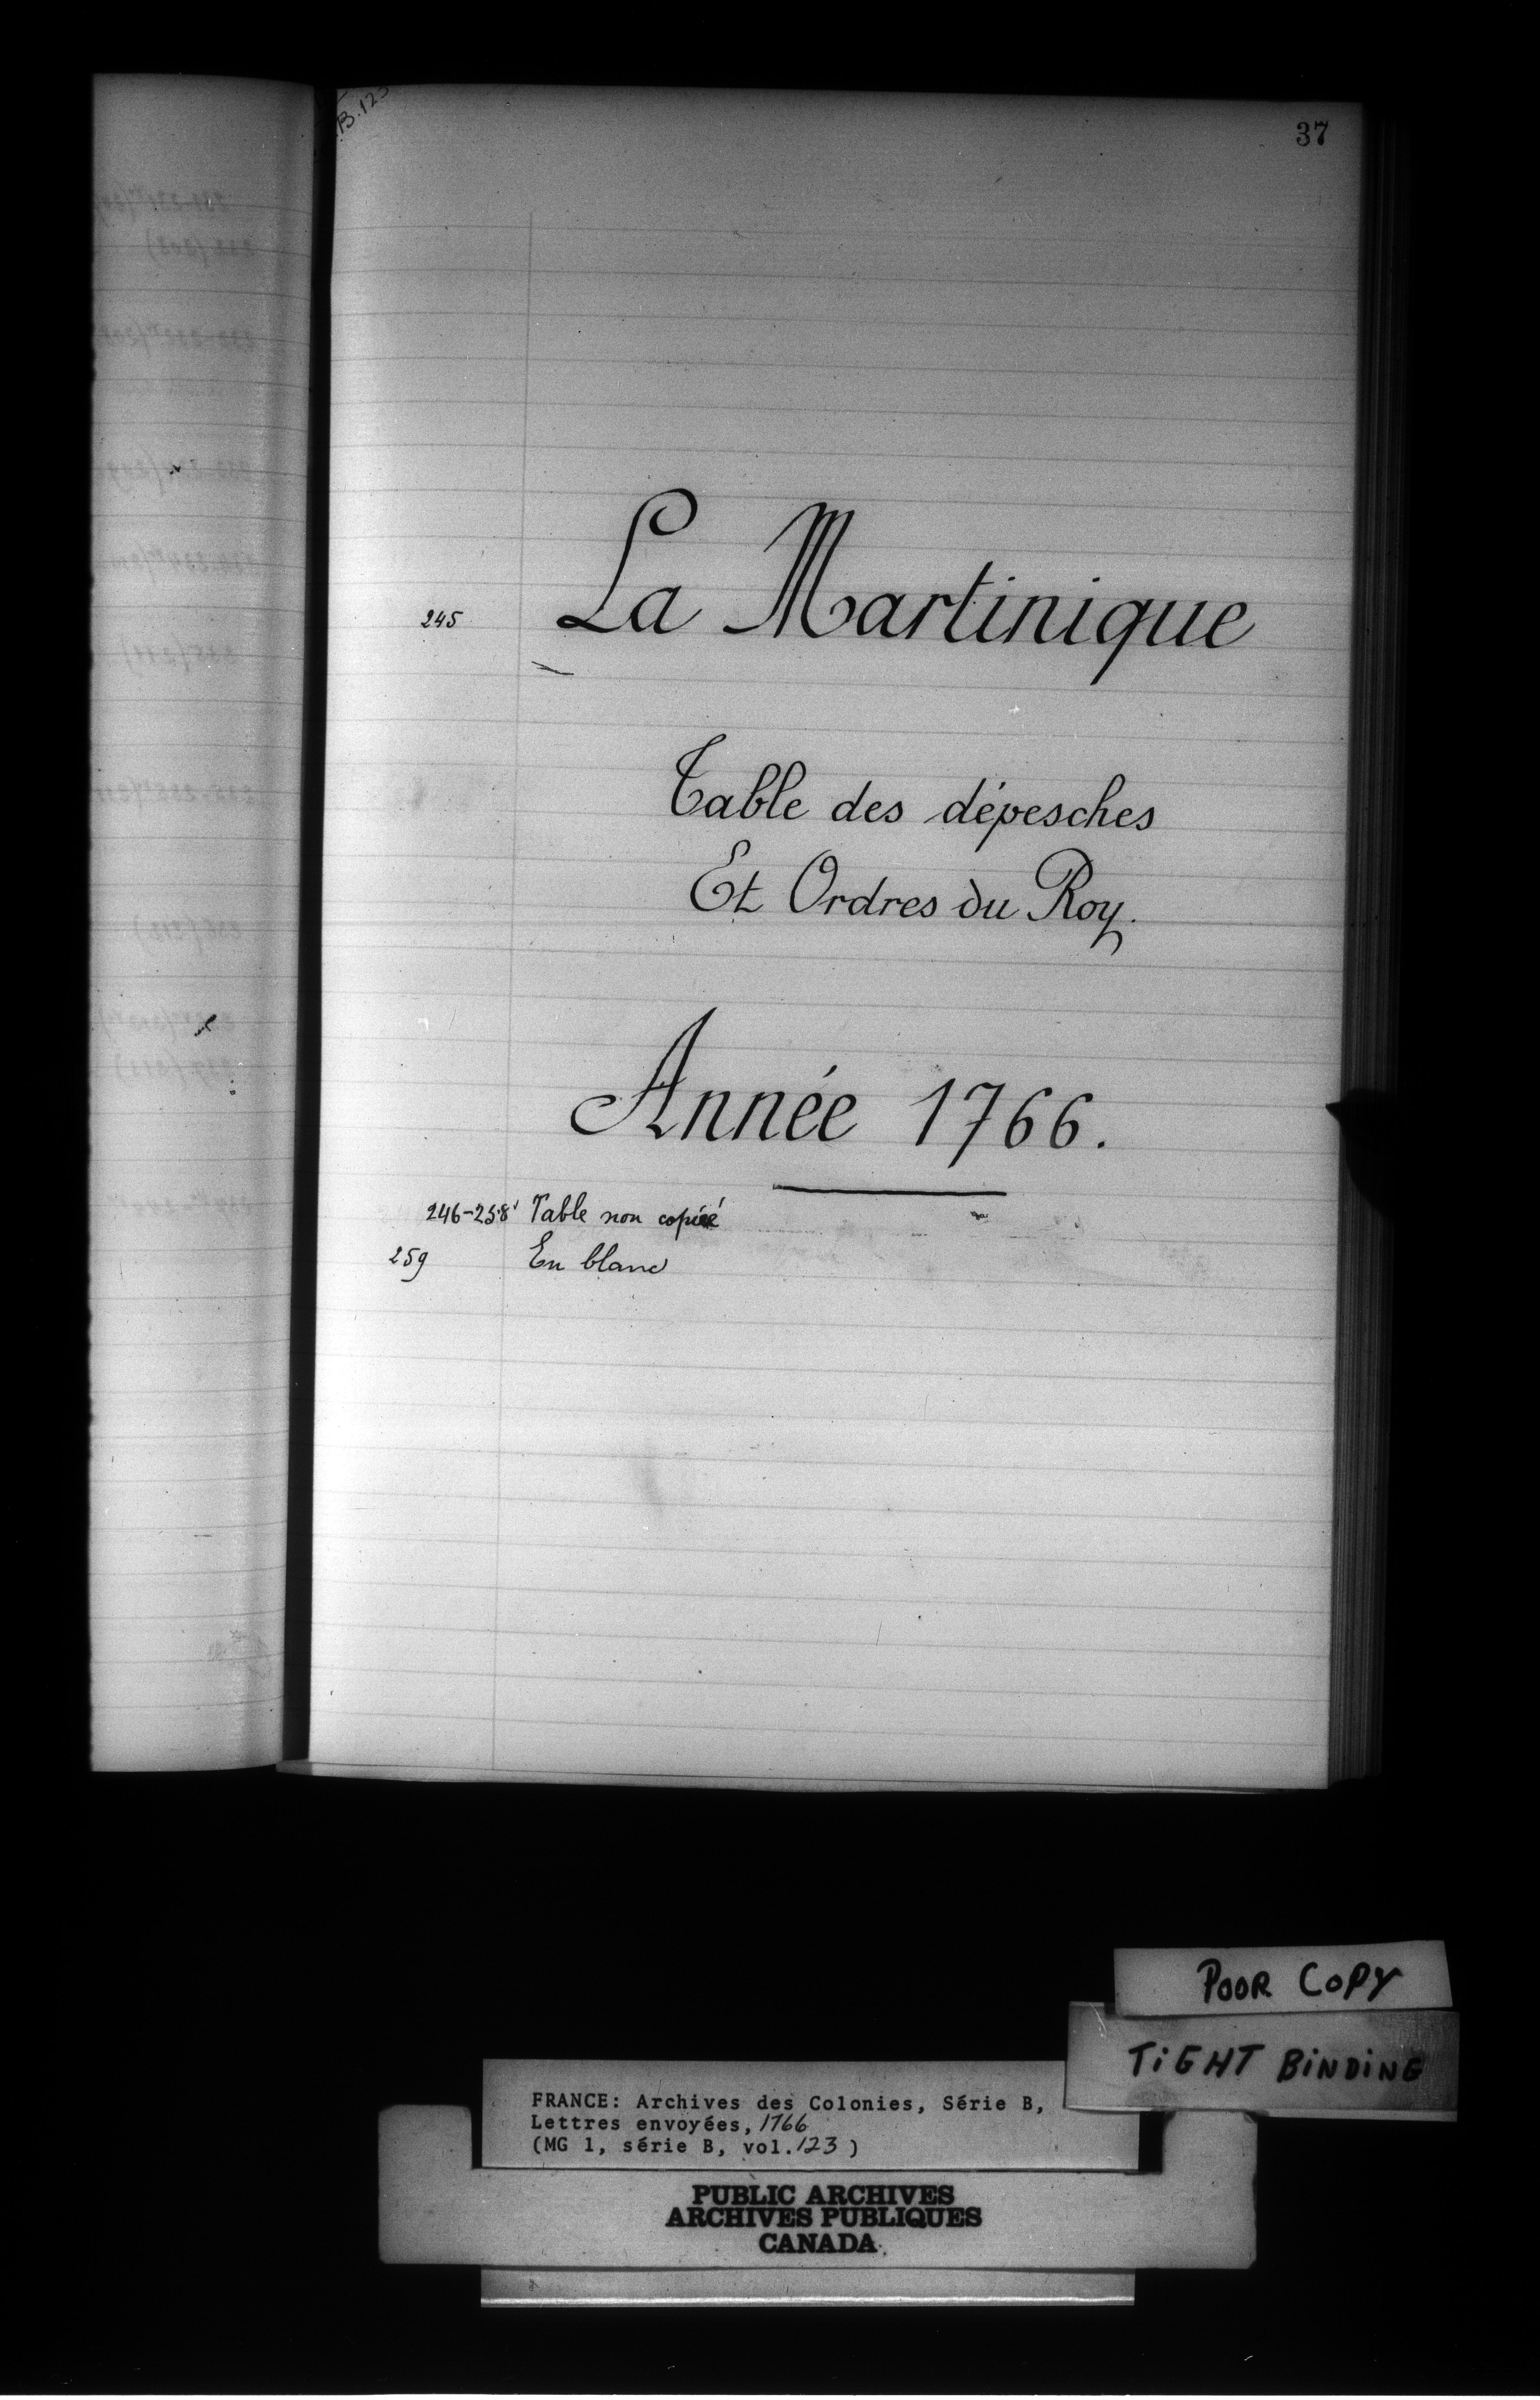 B.123
37
245 La Martinique
Table des dépesches
Et Ordres du Roy.
Année 1766.
246-258 Table non copiée
259 En blanc
POOR COPY
TiGHT BiNDiNG
FRANCE: Archives des Colonies, Série B,
Lettres envoyées, 1766
(MG 1, série B, vol. 123 )
PUBLIC ARCHIVES
ARCHIVES PUBLIQUES
CANADA